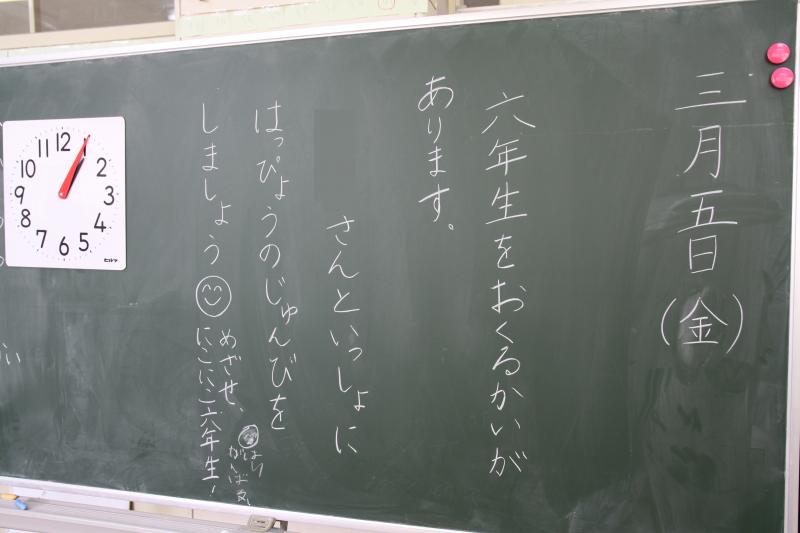 三月五日(金)
六年生をおくるかいが
あります。
さんといっしょに
はっぴょうのじゅんびを
しましょう
めざせ、
にこにこ六年生!
12
1
2
3
4
5
6
7
8
9
10
11